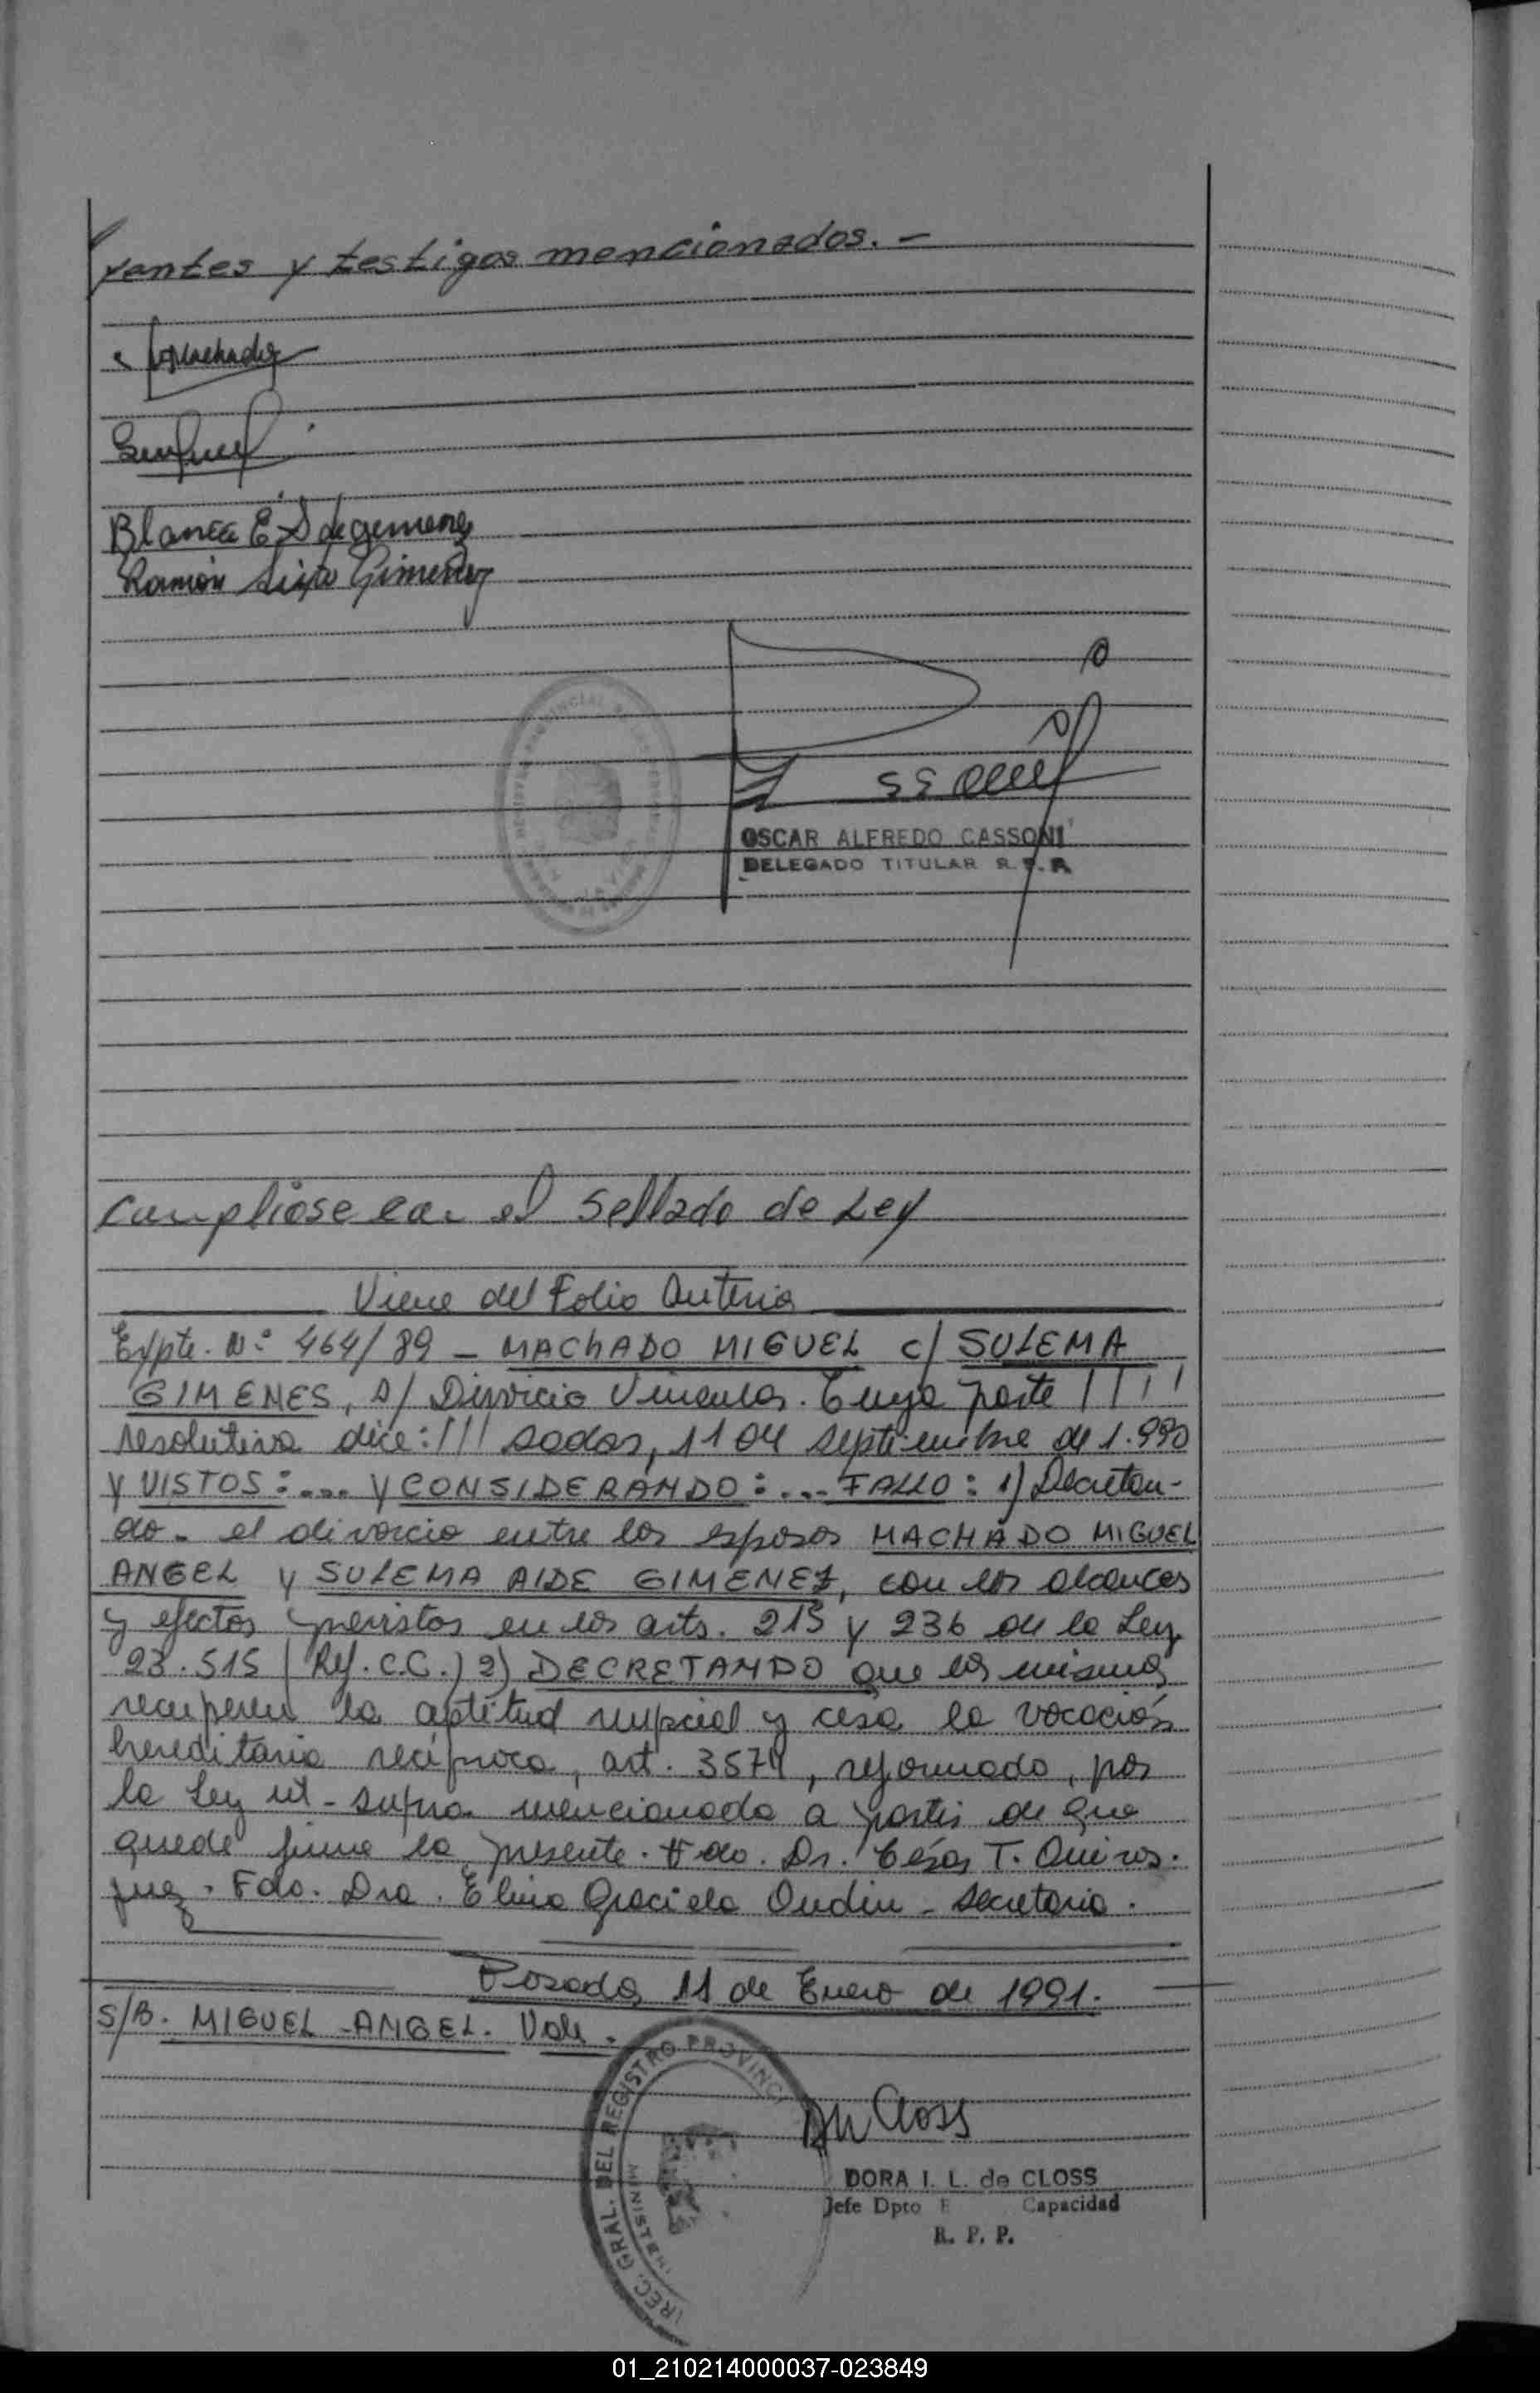 yentes y testigos mencionados. -
Machado
Blanca E. S de gimenez
Ramón Sixto Gimenez
OSCAR ALFREDO CASSONI
DELEGADO TITULAR R. P. P.
Cumpliose con el Sellado de Ley
Viene del Folio Anterior
Expte. Nº 464/89 - MACHADO MIGUEL c/ SULEMA
GIMENES, s/ Divorcio Vincular. Cuya parte
resolutiva dice: /// sadas, 11 04 septiembre de 1.990
Y VISTOS: .... Y CONSIDERANDO: ... FALLO: 1) Decretan-
do - el divorcio entre los esposos MACHADO MIGUEL
ANGEL y SULEMA AIDE GIMENEZ, con los alcances
y efectos previstos en los arts. 215 y 236 de la Ley
23.515 (Ref. C.C.) 2) DECRETANDO que los mismos
recuperen la aptitud nupcial y cesa la vocación
hereditaria recíproca, art. 3574, reformado, por
la Ley ut-supra mencionada a partir de que
quede firme la presente. Fdo. Dr. César T. Quiros.
juez. Fdo. Dra. Elina Graciela Oudin - Secretaria.
Posadas, 11 de Enero de 1991.
S/B. MIGUEL - ANGEL. Vale.
DIREC. GRAL. DEL REGISTRO PROVINCI
MINISTERI
DORA I. L. de CLOSS
Jefe Dpto E Capacidad
R. P. P.
01_210214000037-023849